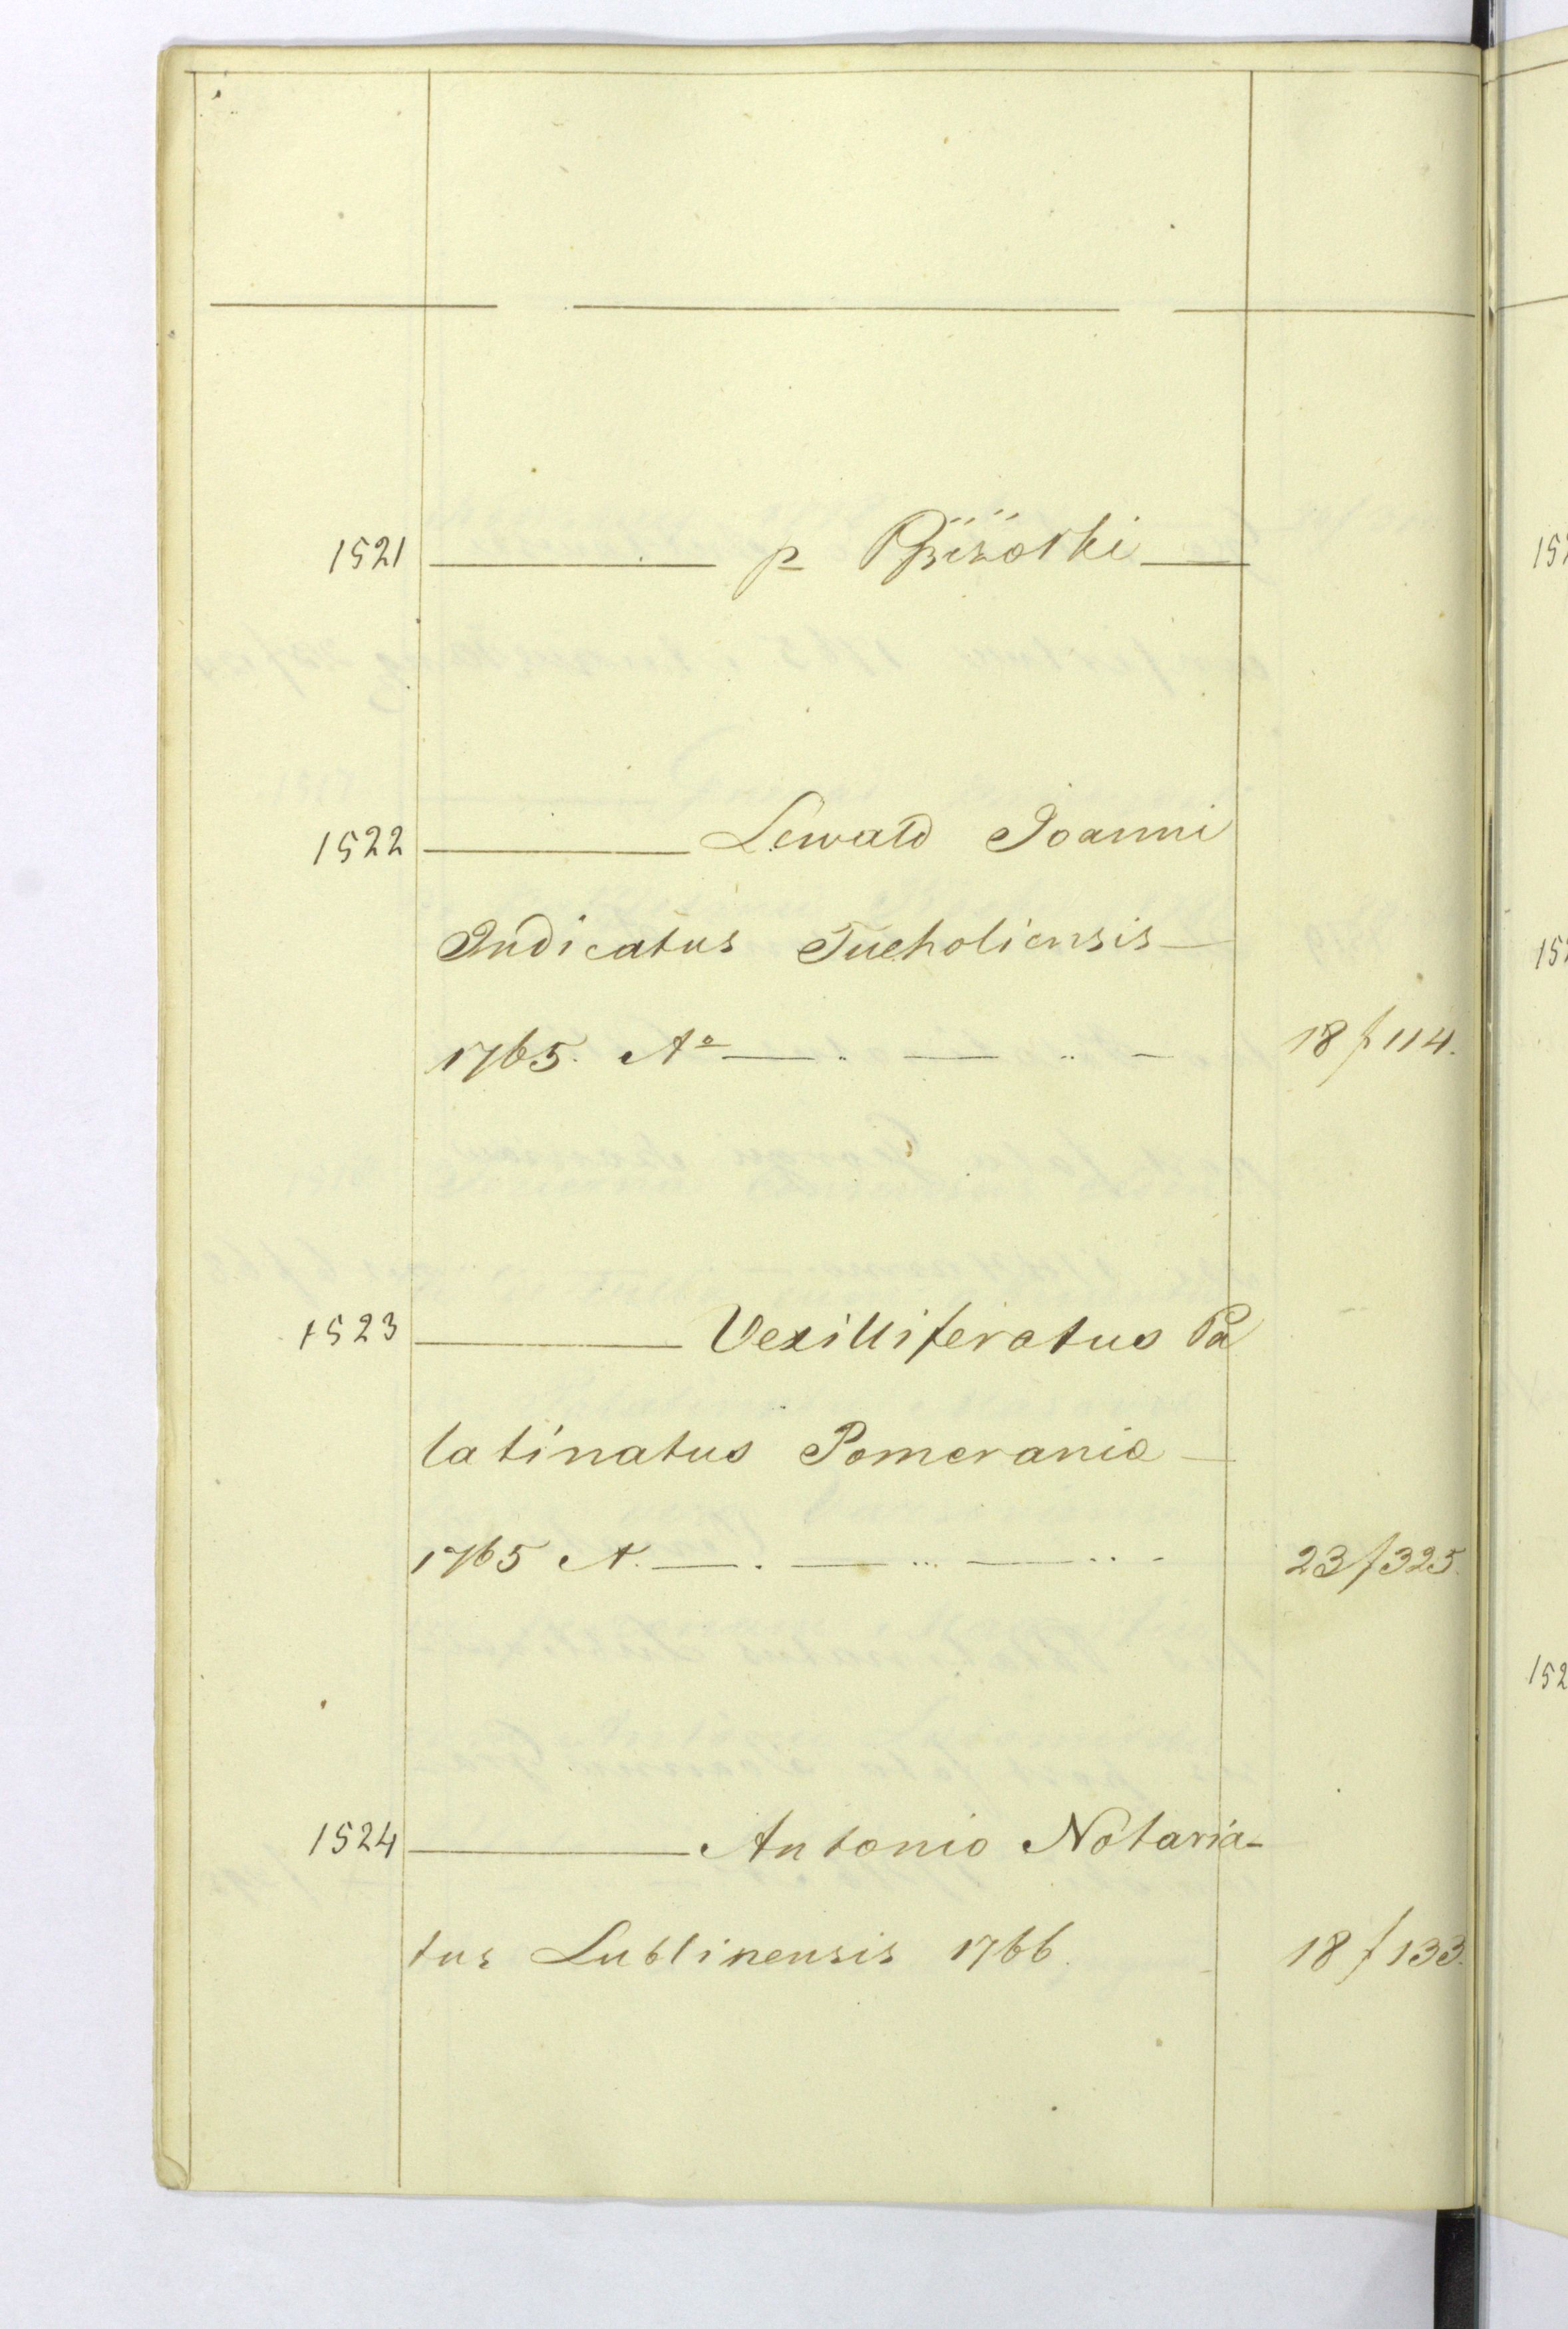 1521 ——— p ———
1522 ——— Lewald Joanni
Judicatus Tucholiensis —
1765. Aº — .. — .. — 18 f 114.
1523 ——— Vexilliferatus Pa
latinatus Pomerania —
1765 A. — . — ... — .. - 23 f 325.
1524 ——— Antonio Notaria-
tus Lublinensis 1766. 18 f 133.